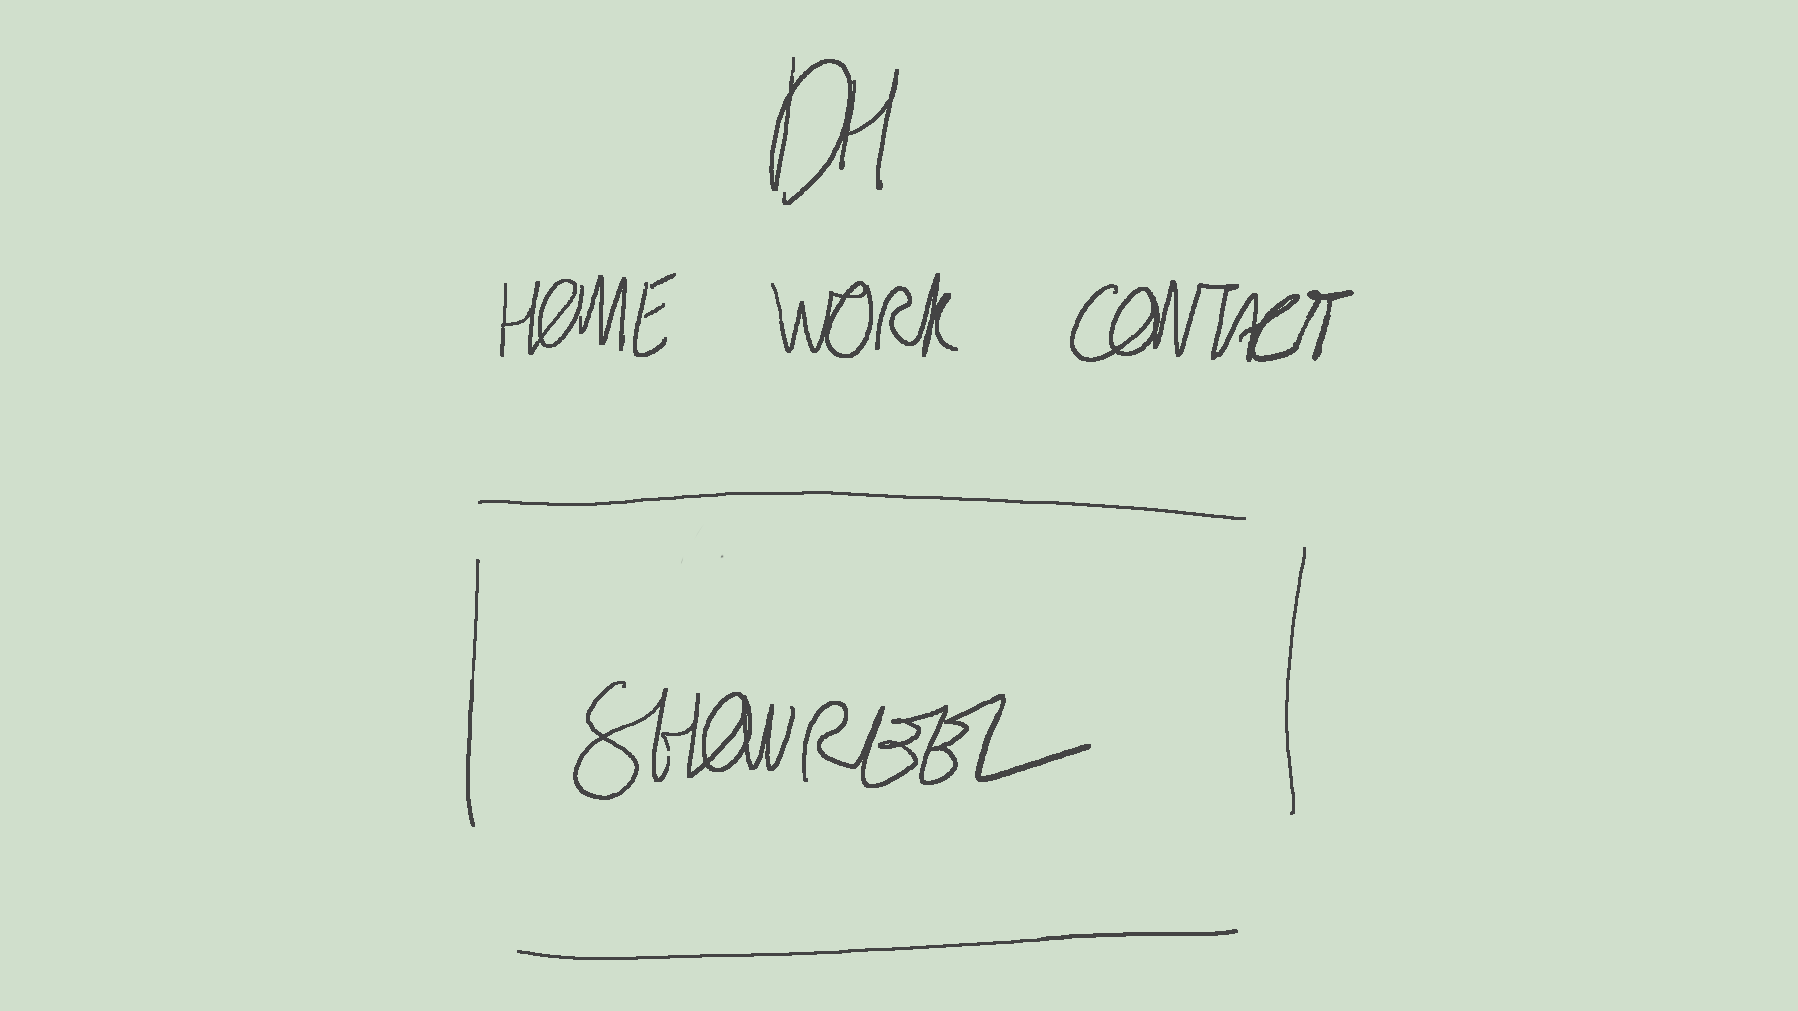 DH
HOME WORK CONTACT
SHOWREEL